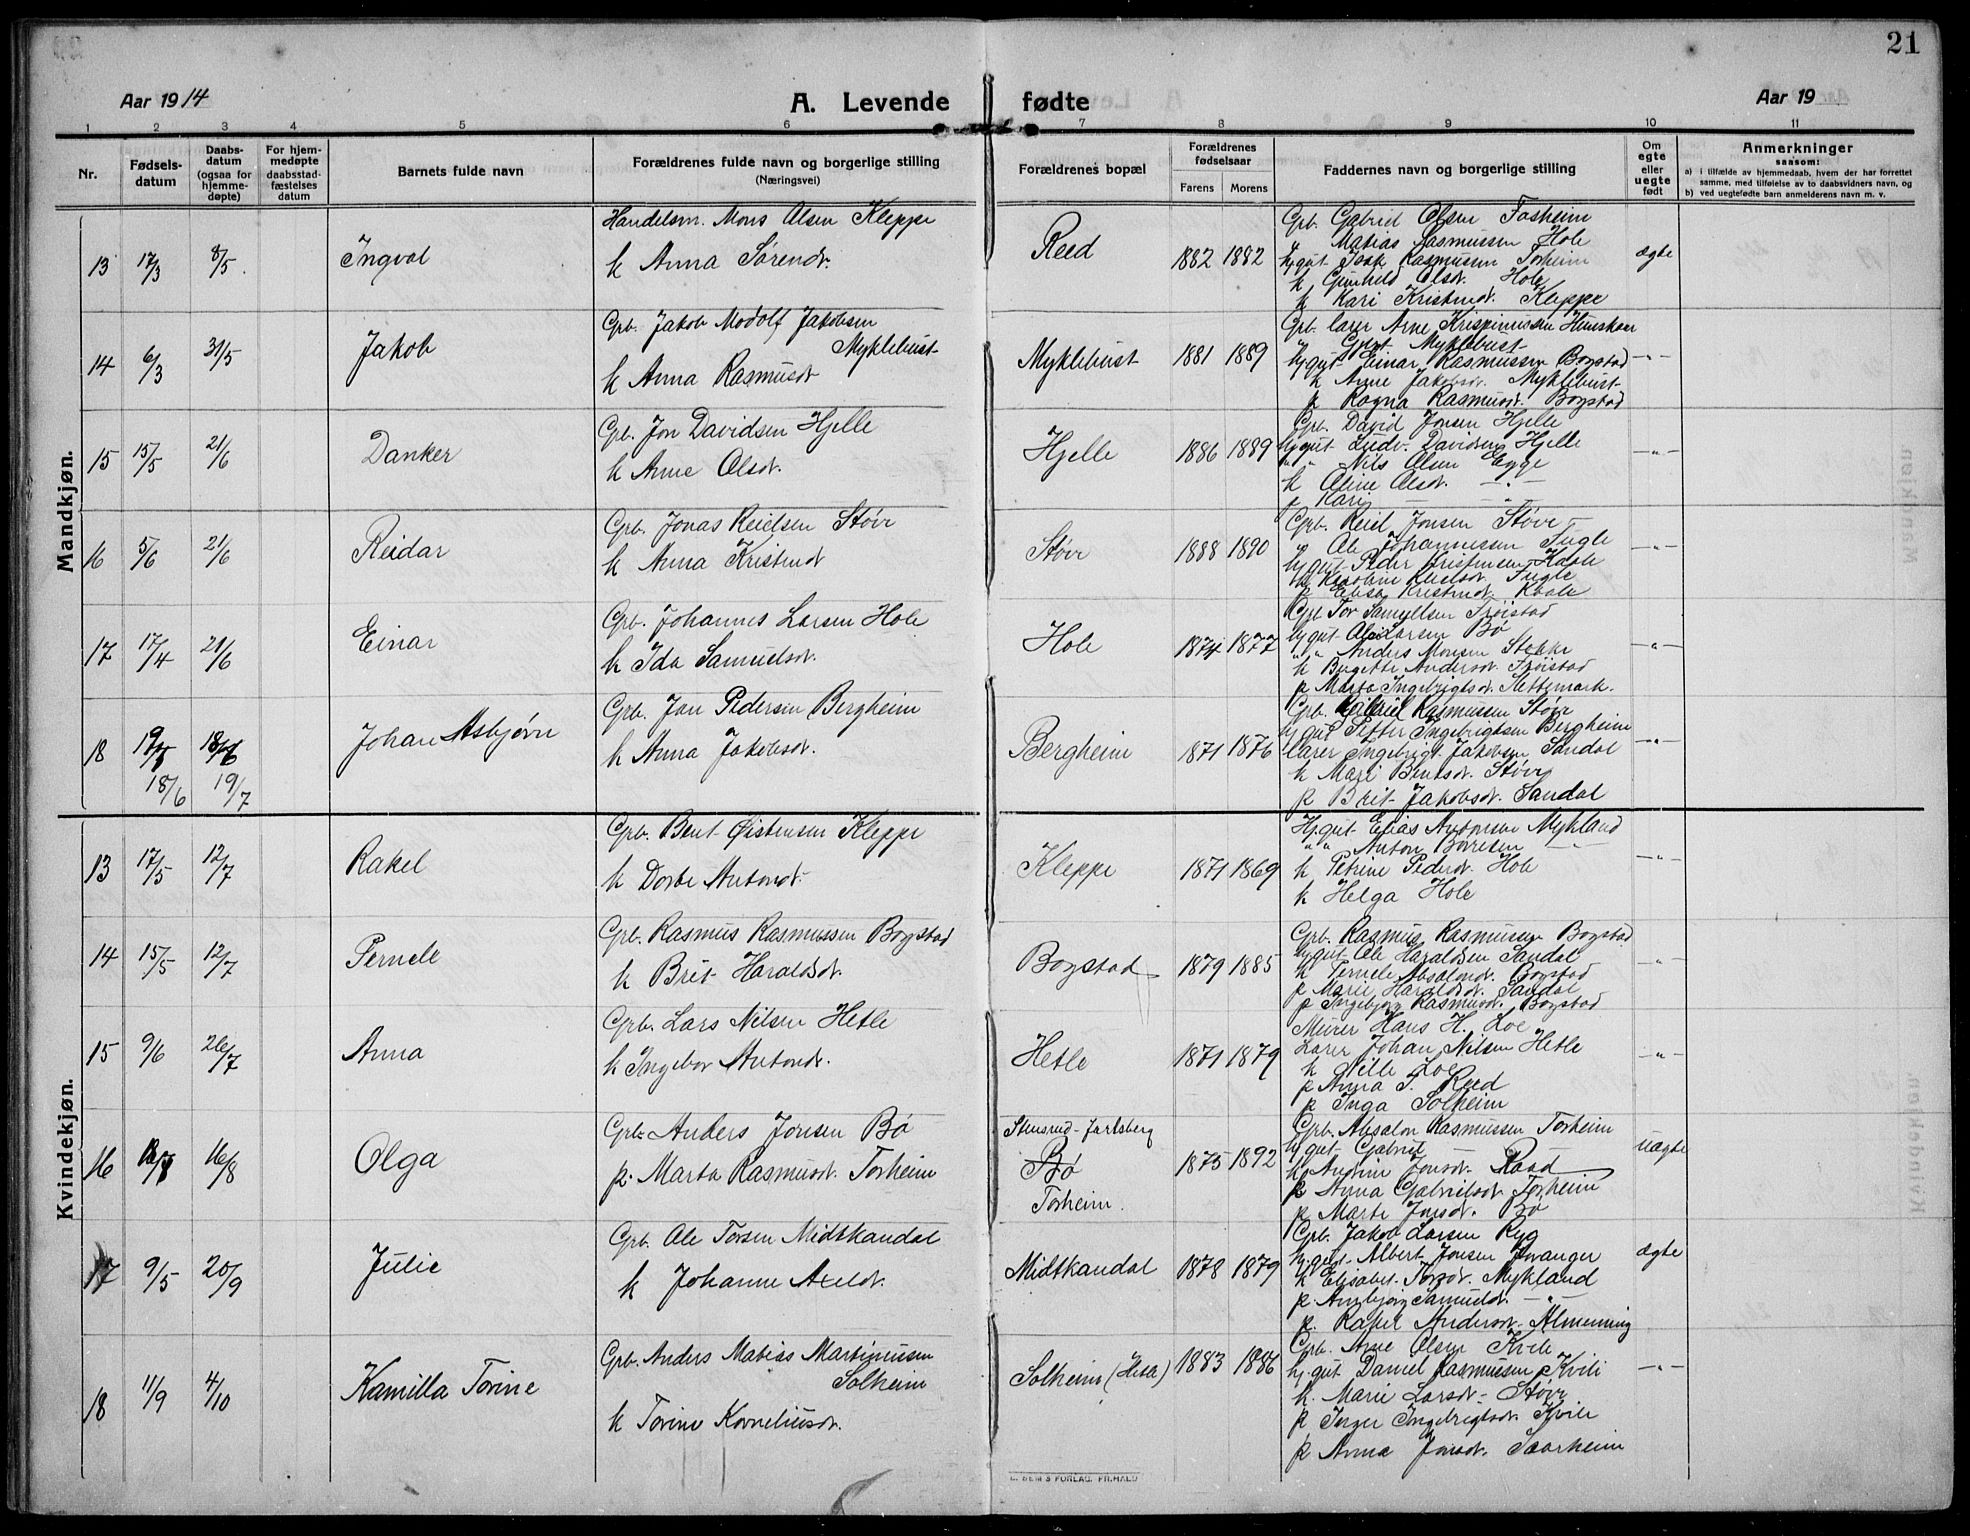 21
Aar 1914
A. Levende fødte
Aar 19
1 2 3 4 5 6 7 8 9 10 11
Nr.
Fødsels-
datum
Daabs-
datum
(ogsaa for
hjemme-
døpte)
For hjem-
medøpte
daabsstad-
fæstelses
datum
Barnets fulde navn
Forældrenes fulde navn og borgerlige stilling
(Næringsvei)
Forældrenes bopæl
Forældrenes
fødselsaar
Farens Morens
Faddernes navn og borgerlige stilling
Om
egte
eller
uegte
født
Anmerkninger
saasom:
a) i tilfælde av hjemmedaab, hvem der har forrettet
samme, med tilføielse av to daabsvidners navn, og
b) ved uegtefødte barn anmelderens navn m. v.
Mandkjøn.
13 17/3 8/5 Ingval
Handelsm. Mons Olsen Kleppe
k Anna Sørensdt.
Reed 1882 1882
Grb. Gabriel Olsen Fosheim
Matias Rasmussen Hole
Isak Rasmussen Torheim
k Gunhild Olsdt. Hole
k Kari Kristensdt. Kleppe
ægte
14 6/3 31/5 Jakob
Grb. Jakob Modolf Jakobsen
Myklebust
k Anna Rasmusdt
Myklebust 1881 1889
Myklebust
Ujgut Einar Rasmussen Bogstad
k Anne Jakobsdt. Myklebust
p Ragna Rasmusdt. Bogstad
-"-
15 15/5 21/6 Danker
Grb. Jon Davidsen Hjelle
k Anne Olsdt.
Hjelle 1886 1889
Grb. David Jonsen Hjelle
Ujgut Ludv. Davidsen Hjelle
" " Nils Olsen Egge
k Oline Olsdt. -"-
p Kari -"-
-"-
16 5/6 21/6 Reidar
Grb. Jonas Reielsen Støvr
k Anna Kristensdt
Støvr 1888 1890
Grb. Reiel Jonsen Støvr
Ole Johannessen Fugle
Ujgut Peder Kristensen Kaale
Karoline Reielsdt. Fugle
p Elisa Kristensdt. Kaale
-"-
17 17/4 21/6 Einar
Grb. Johannes Larsen Hole
k Ida Samuelsdt.
Hole 1874 1877
Grb Tor Samuelsen Frøistad
Ujgut Ole Larsen Bø
" " Anders Monsen Stokke
k Birgitte Andersdt. Frøistad
p Marta Ingebrigtsdt. Slettemark.
-"-
18 18/6 19/7 Johan Asbjørn
Grb. Jon Pedersen Bergheim
k Anna Jakobsdt.
Bergheim 1871 1876
Grb. Rasmussen Støvr
Ujgut Ingebrigtsen Bergheim
Lærer Ingebrigt Jakobsen Sandal
k Mari Bentsdt. Støvr
p Brit Jakobsdt. Sandal
-"-
Kvindekjøn.
13 17/5 12/7 Rakel
Grb. Bent Øistensen Kleppe
k Dorte Antonsdt.
Kleppe 1871 1869
Ujgut Elias Antonsen Mykland
" " Anton Børresen -"-
k Petrine Pedersdt. Hole
k Helga Hole
-"-
14 15/5 12/7 Pernele
Grb. Rasmus Rasmussen Bogstad
k Brit Haraldsdt.
Bogstad 1879 1885
Grb. Rasmus Rasmussen Bogstad
Ujgut Ole Haraldsen Sandal
k Pernele Absalonsdt. Bogstad
p Marie Haraldsdt. Sandal
p Ingebjørg Rasmusdt. Bogstad
-"-
15 9/6 26/7 Anna
Grb. Lars Nilsen Hetle
k Ingebor Antonsdt.
Hetle 1871 1879
Murer Hans H. Loe
Lærer Johan Nilsen Hetle
k Nille Loe
p Anna T. Reed
p Inga Solheim
-"-
16 16/8 Olga
Grb. Anders Jonsen Bø
p. Marta Rasmusdt. Torheim
Stensrud-Jarlsberg
Bø
Torheim.
1875 1892
Grb. Absalon Rasmussen Torheim
Ujgut Gabriel
k Jonsdt. Raad
p Anna Gabrielsdt Torheim
p Marte Jonsdt. Bø
uægte
17 9/5 20/9 Julie
Grb. Ole Torsen Midtkandal
k Johanne Axelsdt.
Midtkandal 1878 1879
Grb. Jakob Larsen Ryg
Ujgut Albert Jonsen Joranger
k Elisabet Torsdt. Mykland
p. Samuelsdt. -"-
p. Rakel Andersdt. Almenning
ægte
18 11/9 4/10 Kamilla Torine
Grb. Anders Matias Martinussen
Solheim
k Torine Korneliusdt.
Solheim (Heta) 1883 1886
Grb. Arne Olsen Kvile
Ujgut Daniel Rasmussen Kvili
k. Marie Larsdt. Støvr
p Inger Ingebrigtsdt. Kvile
p Anna Jonsdt. Saarheim
-"-